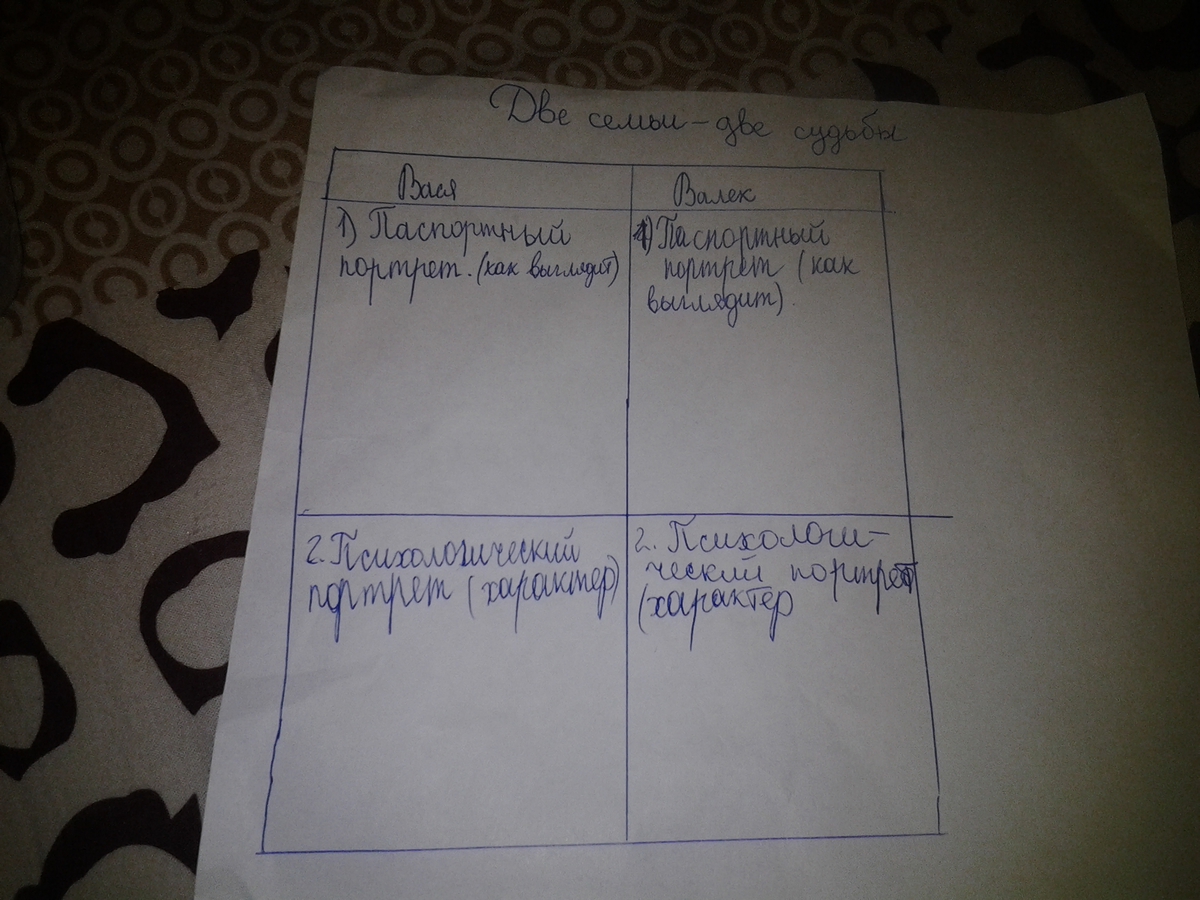 Две семьи - две судьбы
Вася
Валек
1) Паспортный
портрет. (как выглядит)
1) Паспортный
портрет (как
выглядит).
2. Психологический
портрет (характер)
2. Психологи-
ческий портрет
(характер